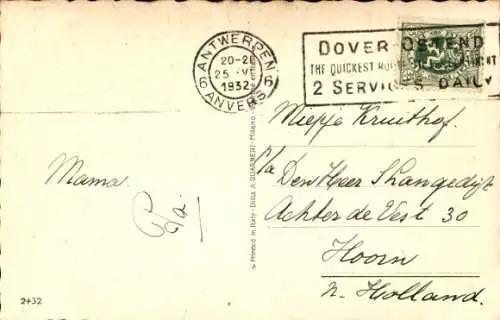 ANTWERPEN
20-2
25 VI
1932
6 6
ANVERS
DOVER-OSTEND
THE QUICKEST
2 SERVICES DAILY
Miepje Kruithof.
p/a
Den Heer Shangedijk
Achter de Vest 30
Hoorn
N. Holland.
Mama.
Pa.
Printed in Italy - Ditta A. GUARNERI - Milano
2+32